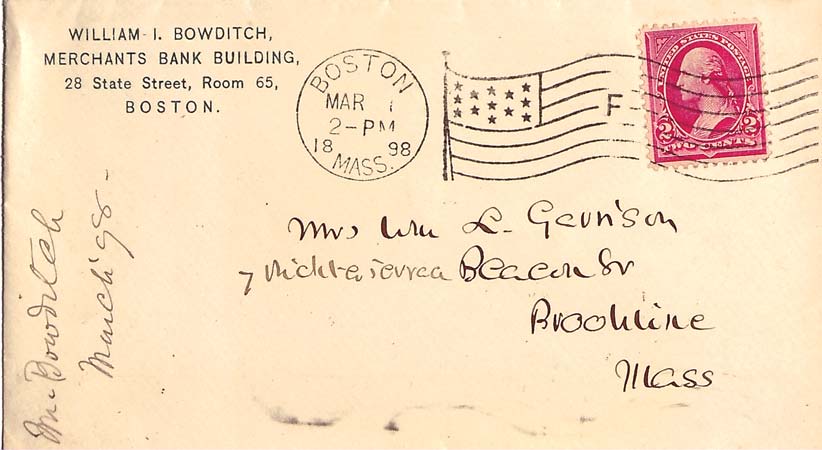 WILLIAM I. BOWDITCH,
MERCHANTS BANK BUILDING,
28 State Street, Room 65,
BOSTON.
BOSTON
MAR 1
2-PM
18 98
MASS.
F
UNITED STATES POSTAGE
2 2
TWO CENTS
Mrs Wm L. Garrison
7 Beacon St
Brookline
Mass
Wm Bowditch
March '98 -